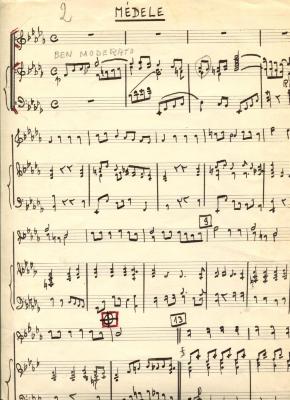 2 MÉDELE
BEN MODERATO
9
13